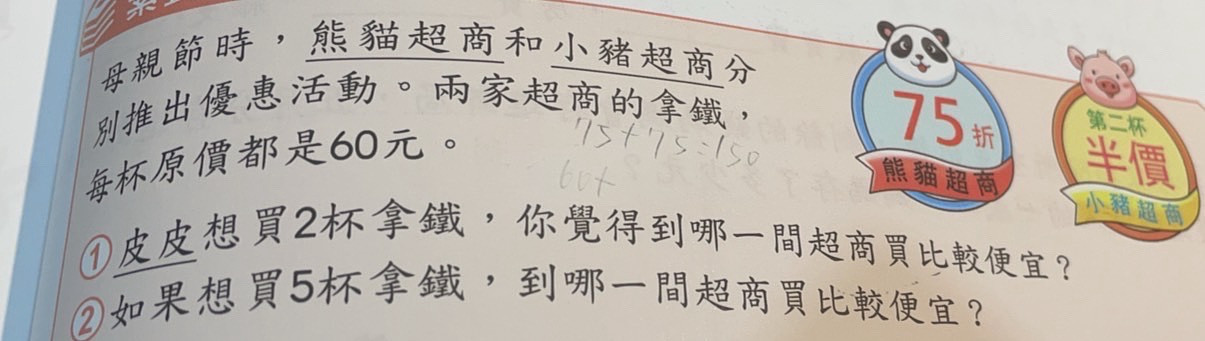 母親節時，熊貓超商和小豬超商分
別推出優惠活動。兩家超商的拿鐵，
每杯原價都是60元。
75+75=150
60+
①皮皮想買2杯拿鐵，你覺得到哪一間超商買比較便宜？
②如果想買5杯拿鐵，到哪一間超商買比較便宜？
75折
熊貓超商
第二杯
半價
小豬超商